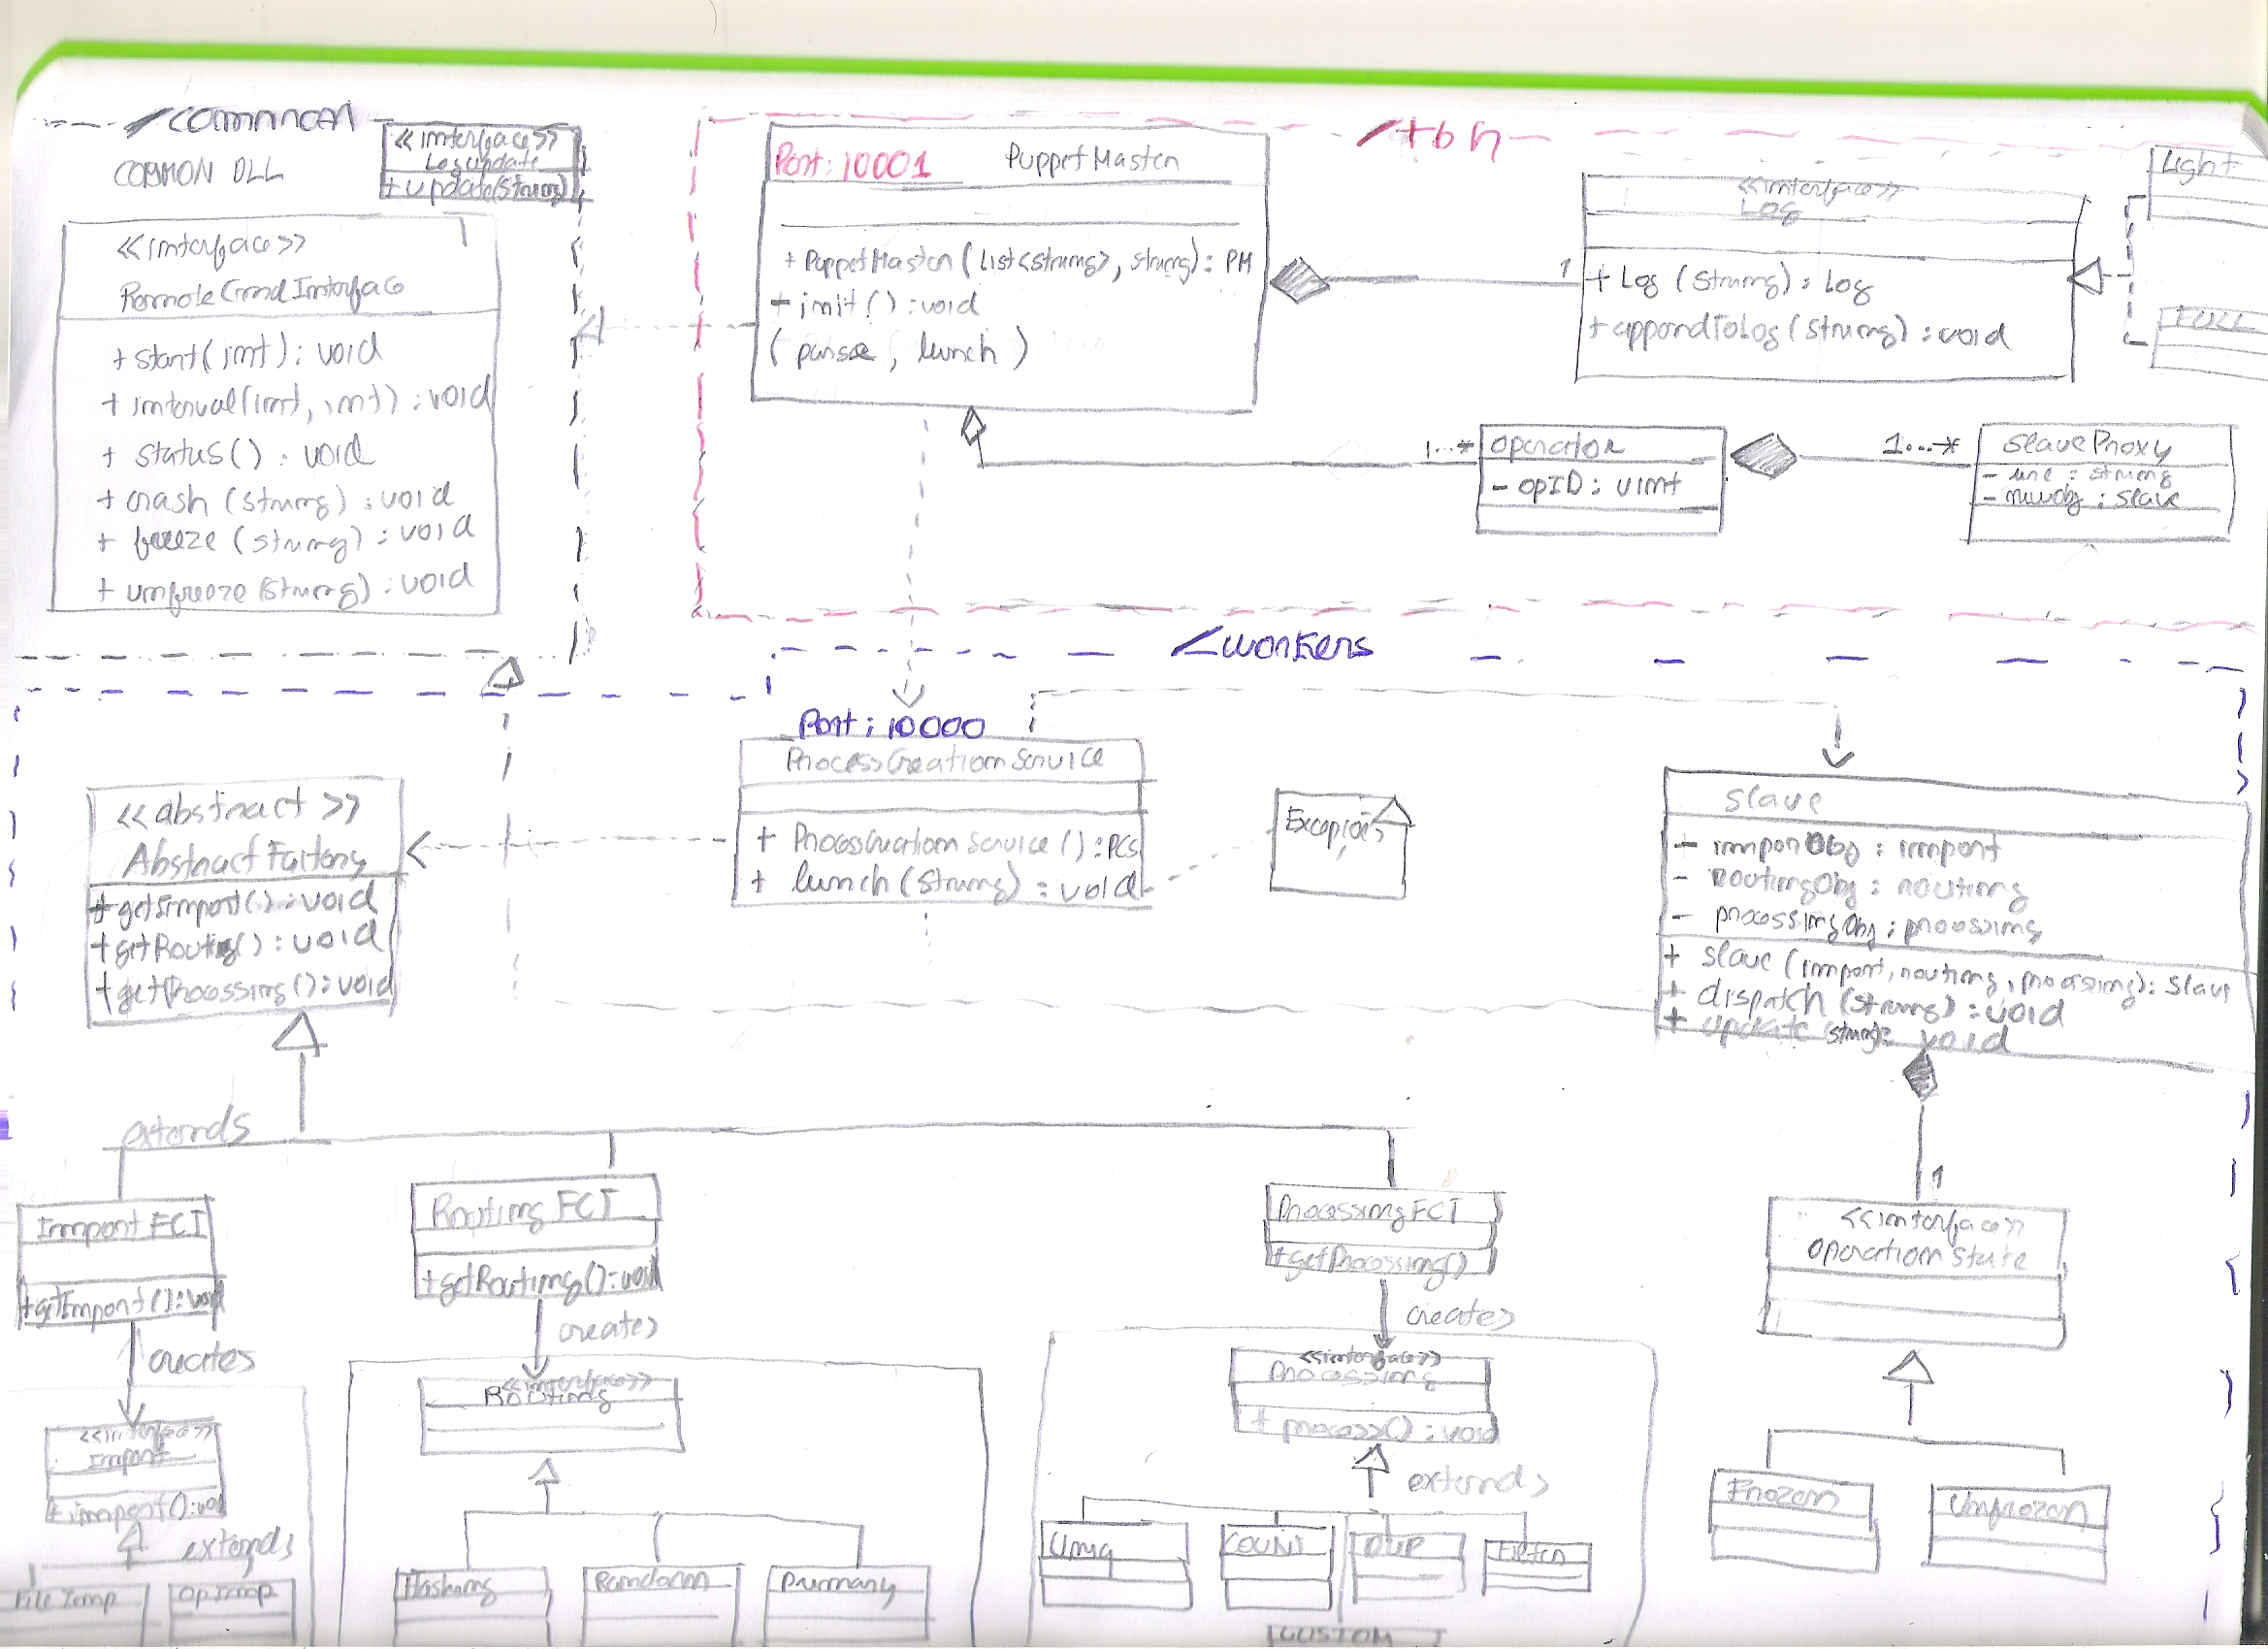 /common
COMMON DLL
<<interface>>
Log update
+ update(string)
<<interface>>
RemoteCmdInterface
+ start(int): void
+ interval(int, int): void
+ status() : void
+ crash (string) : void
+ freeze (string) : void
+ unfreeze (string) : void
Port: 10001
PuppetMaster
+ PuppetMaster (List<string>, string) : PM
+ init() : void
( parse , lunch )
<<interface>>
Log
+ Log (string) : Log
+ appendToLog (string) : void
Light
FULL
1
1...*
operator
- opID : uint
1...*
slaveProxy
- url : string
: slave
/workers
Port : 10000
ProcessCreationService
+ ProcessCreationService () : PCS
+ lunch (string) : void
Exceptions
<<abstract>>
AbstractFactory
+ getImport() : void
+ getRouting() : void
+ getProcessing() : void
slave
- importObj : import
- routingObj : routing
- processingObj : processing
+ slave (import, routing, processing): slave
+ dispatch (string) : void
+ update (string): void
extends
1
Import FCT
+ getImport() : void
creates
Routing FCT
+ getRouting() : void
creates
Processing FCT
+ getProcessing()
creates
<<interface>>
operation state
Frozen
Unfrozen
<<interface>>
Import
+ import() : void
extends
File Imp
Op Imp
<<interface>>
Routing
Hashing
Random
Primary
<<interface>>
Processing
+ process() : void
extends
Uniq
COUNT
DUP
Filter
CUSTOM